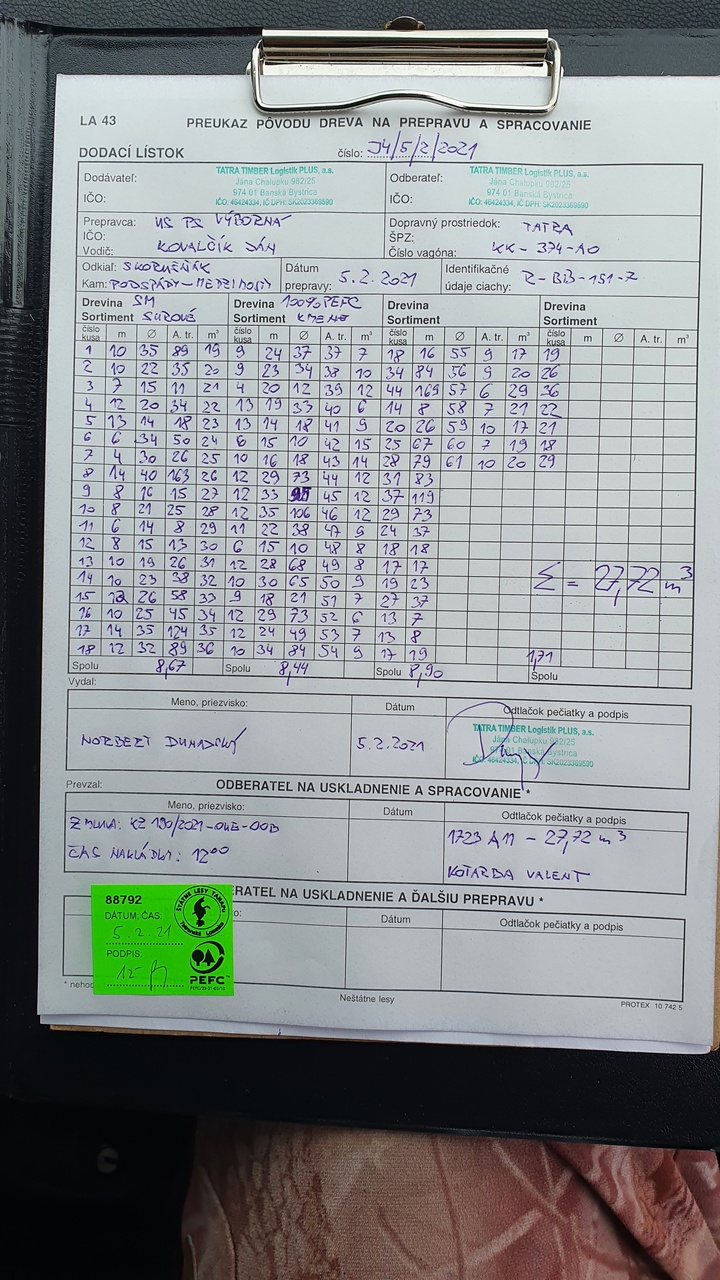 LA 43
PREUKAZ PÔVODU DREVA NA PREPRAVU A SPRACOVANIE
DODACÍ LÍSTOK číslo: J4/5/2/2021
Dodávateľ: TATRA TIMBER Logistik PLUS, a.s. Odberateľ: TATRA TIMBER Logistik PLUS, a.s.
Jána Chalupku 982/25 Jána Chalupku 982/25
IČO: 974 01 Banská Bystrica IČO: 974 01 Banská Bystrica
IČO: 46424334, IČ DPH: SK2023369590 IČO: 46424334, IČ DPH: SK2023369590
Prepravca: US PS VÝBORNÁ Dopravný prostriedok: TATRA
IČO: ŠPZ:
Vodič: KOVALČÍK JÁN Číslo vagóna: KK-374-AO
Odkiaľ: Dátum Identifikačné
Kam: PODSPÁDY- prepravy: 5.2.2021 údaje ciachy: R-BB-151-7
Drevina SM Drevina 100% PEFC Drevina Drevina
Sortiment SUROVÉ Sortiment KMENE Sortiment Sortiment
číslo kusa m Ø A. tr. m³ číslo kusa m Ø A. tr. m³ číslo kusa m Ø A. tr. m³ m Ø A. tr. m³
1 10 35 89 19 9 24 37 37 7 18 16 55 9 17 19
2 10 22 35 20 9 23 34 38 10 34 84 56 9 20 26
3 7 15 11 21 4 20 12 39 12 44 169 57 6 29 36
4 12 20 34 22 13 19 33 40 6 14 8 58 7 21 22
5 13 14 18 23 13 14 18 41 9 20 26 59 10 17 21
6 6 34 50 24 6 15 10 42 15 25 67 60 7 19 18
7 4 30 26 25 10 16 18 43 14 28 79 61 10 20 29
8 14 40 163 26 12 29 73 44 12 31 83
9 8 16 15 27 12 33 45 12 37 119
10 8 21 25 28 12 35 106 46 12 29 73
11 6 14 8 29 11 22 38 47 9 24 37
12 8 15 13 30 6 15 10 48 8 18 18
13 10 19 26 31 12 28 68 49 8 17 17
14 10 23 38 32 10 30 65 50 9 19 23
15 12 26 58 33 9 18 21 51 7 27 37
16 10 25 45 34 12 29 73 52 6 13 7
17 14 35 124 35 12 24 49 53 7 13 8
18 12 32 89 36 10 34 84 54 9 17 19 1,71
Σ = 27,72 m³
Spolu 8,67 Spolu 8,44 Spolu 8,90 Spolu
Vydal:
Meno, priezvisko: Dátum Odtlačok pečiatky a podpis
NORBERT DUNAJSKÝ 5.2.2021 TATRA TIMBER Logistik PLUS, a.s.
Jána Chalupku 982/25
974 01 Banská Bystrica
IČO: 46424334, IČ DPH: SK2023369590
Prevzal: ODBERATEĽ NA USKLADNENIE A SPRACOVANIE *
Meno, priezvisko: Dátum Odtlačok pečiatky a podpis
ZMLUVA: KZ 190/2021-OHE-OOB 1723 A11 - 27,72 m³
ČAS NAKLÁDKY: 12⁰⁰ KOTARBA VALENT
ERATEĽ NA USKLADNENIE A ĎALŠIU PREPRAVU *
no: Dátum Odtlačok pečiatky a podpis
88792
DÁTUM, ČAS:
5.2.21
PODPIS:
ŠTÁTNE LESY TANAPU
PEFC™
* nehod
Neštátne lesy
PROTEX 10 742 5